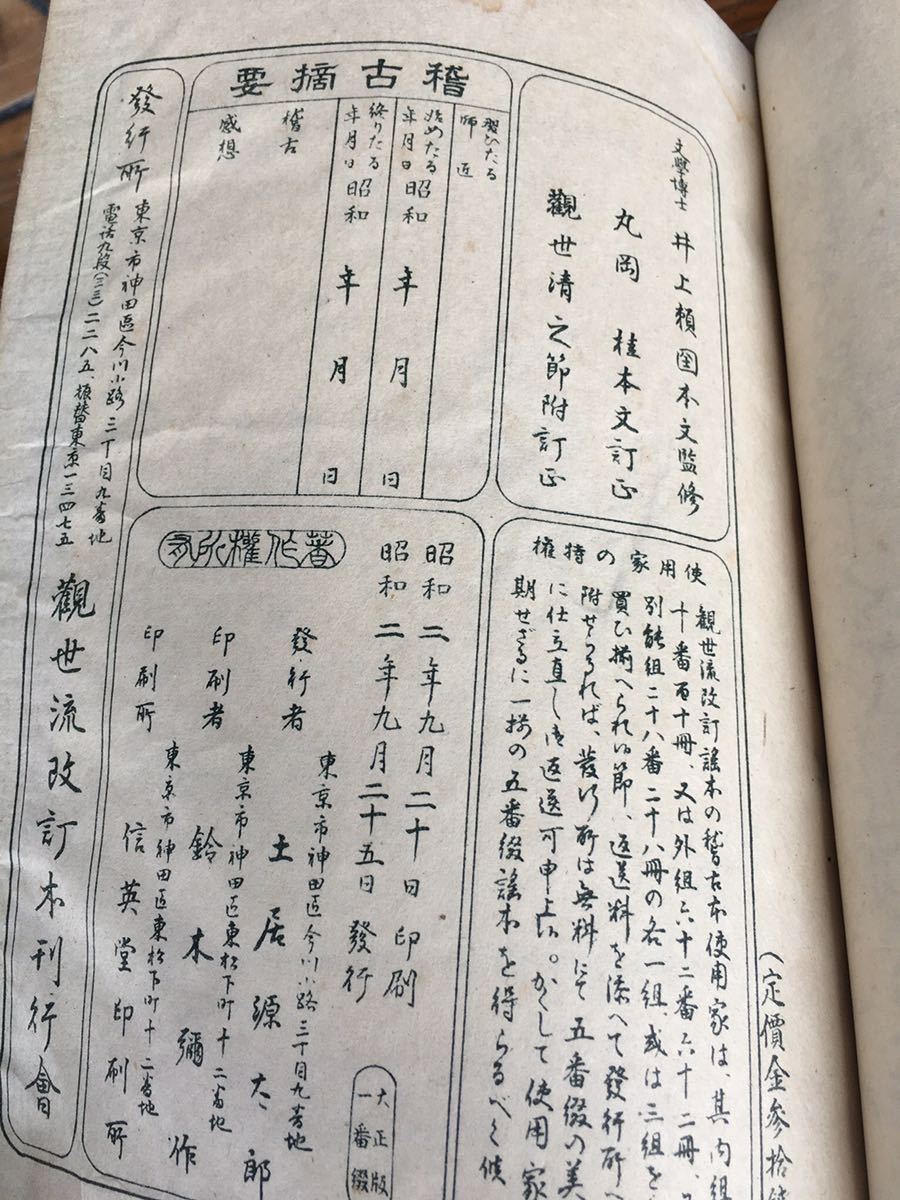 文學博士 井上頼圀本文監修
丸岡 桂本文訂正
觀世清之節附訂正
稽古摘要
習ひたる
師匠
始めたる
年月日 昭和 年 月 日
終りたる
年月日 昭和 年 月 日
稽古
感想
使用家の特權
觀世流改訂謠本の稽古本使用家は其内組
十番百十冊、又は外組六十二番六十二冊、
別能組二十八番二十八冊の各一組、或は三組を
買ひ揃へられい節、返送料を添へて發行所へ
附せらるれば、發行所は無料にて五番綴の美
に仕立直し御返送可申上候。かくして使用家
期せざるに一揃の五番綴謠本を得らるべく候
(定價金參拾
著作權所有
昭和二年九月二十日印刷
昭和二年九月二十五日發行
東京市神田區今川小路三丁目九番地
發行者 土居源太郎
東京市神田區東松下町十二番地
印刷者 鈴木彌作
東京市神田區東松下町十二番地
印刷所 信英堂印刷所
大正版
一番綴
發行所 東京市神田區今川小路三丁目九番地
電話九段(三三)二二八五、振替東京一三四七五
觀世流改訂本刊行會